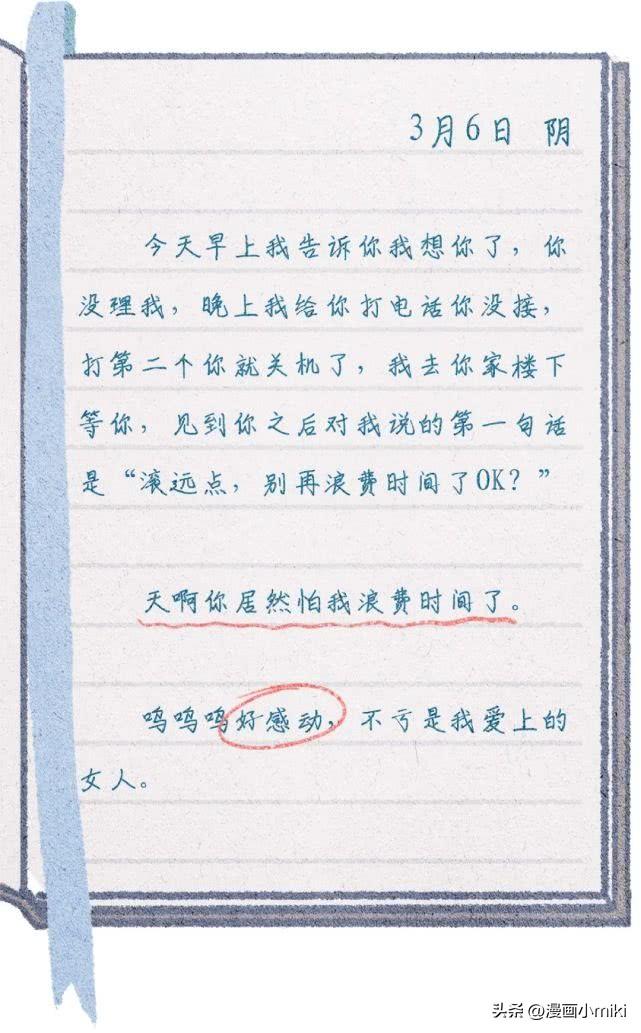 3月6日 阴
今天早上我告诉你我想你了，你
没理我，晚上我给你打电话你没接，
打第二个你就关机了，我去你家楼下
等你，见到你之后对我说的第一句话
是“滚远点，别再浪费时间了OK？”
天啊你居然怕我浪费时间了。
呜呜呜好感动，不亏是我爱上的
女人。
头条 @漫画小miki